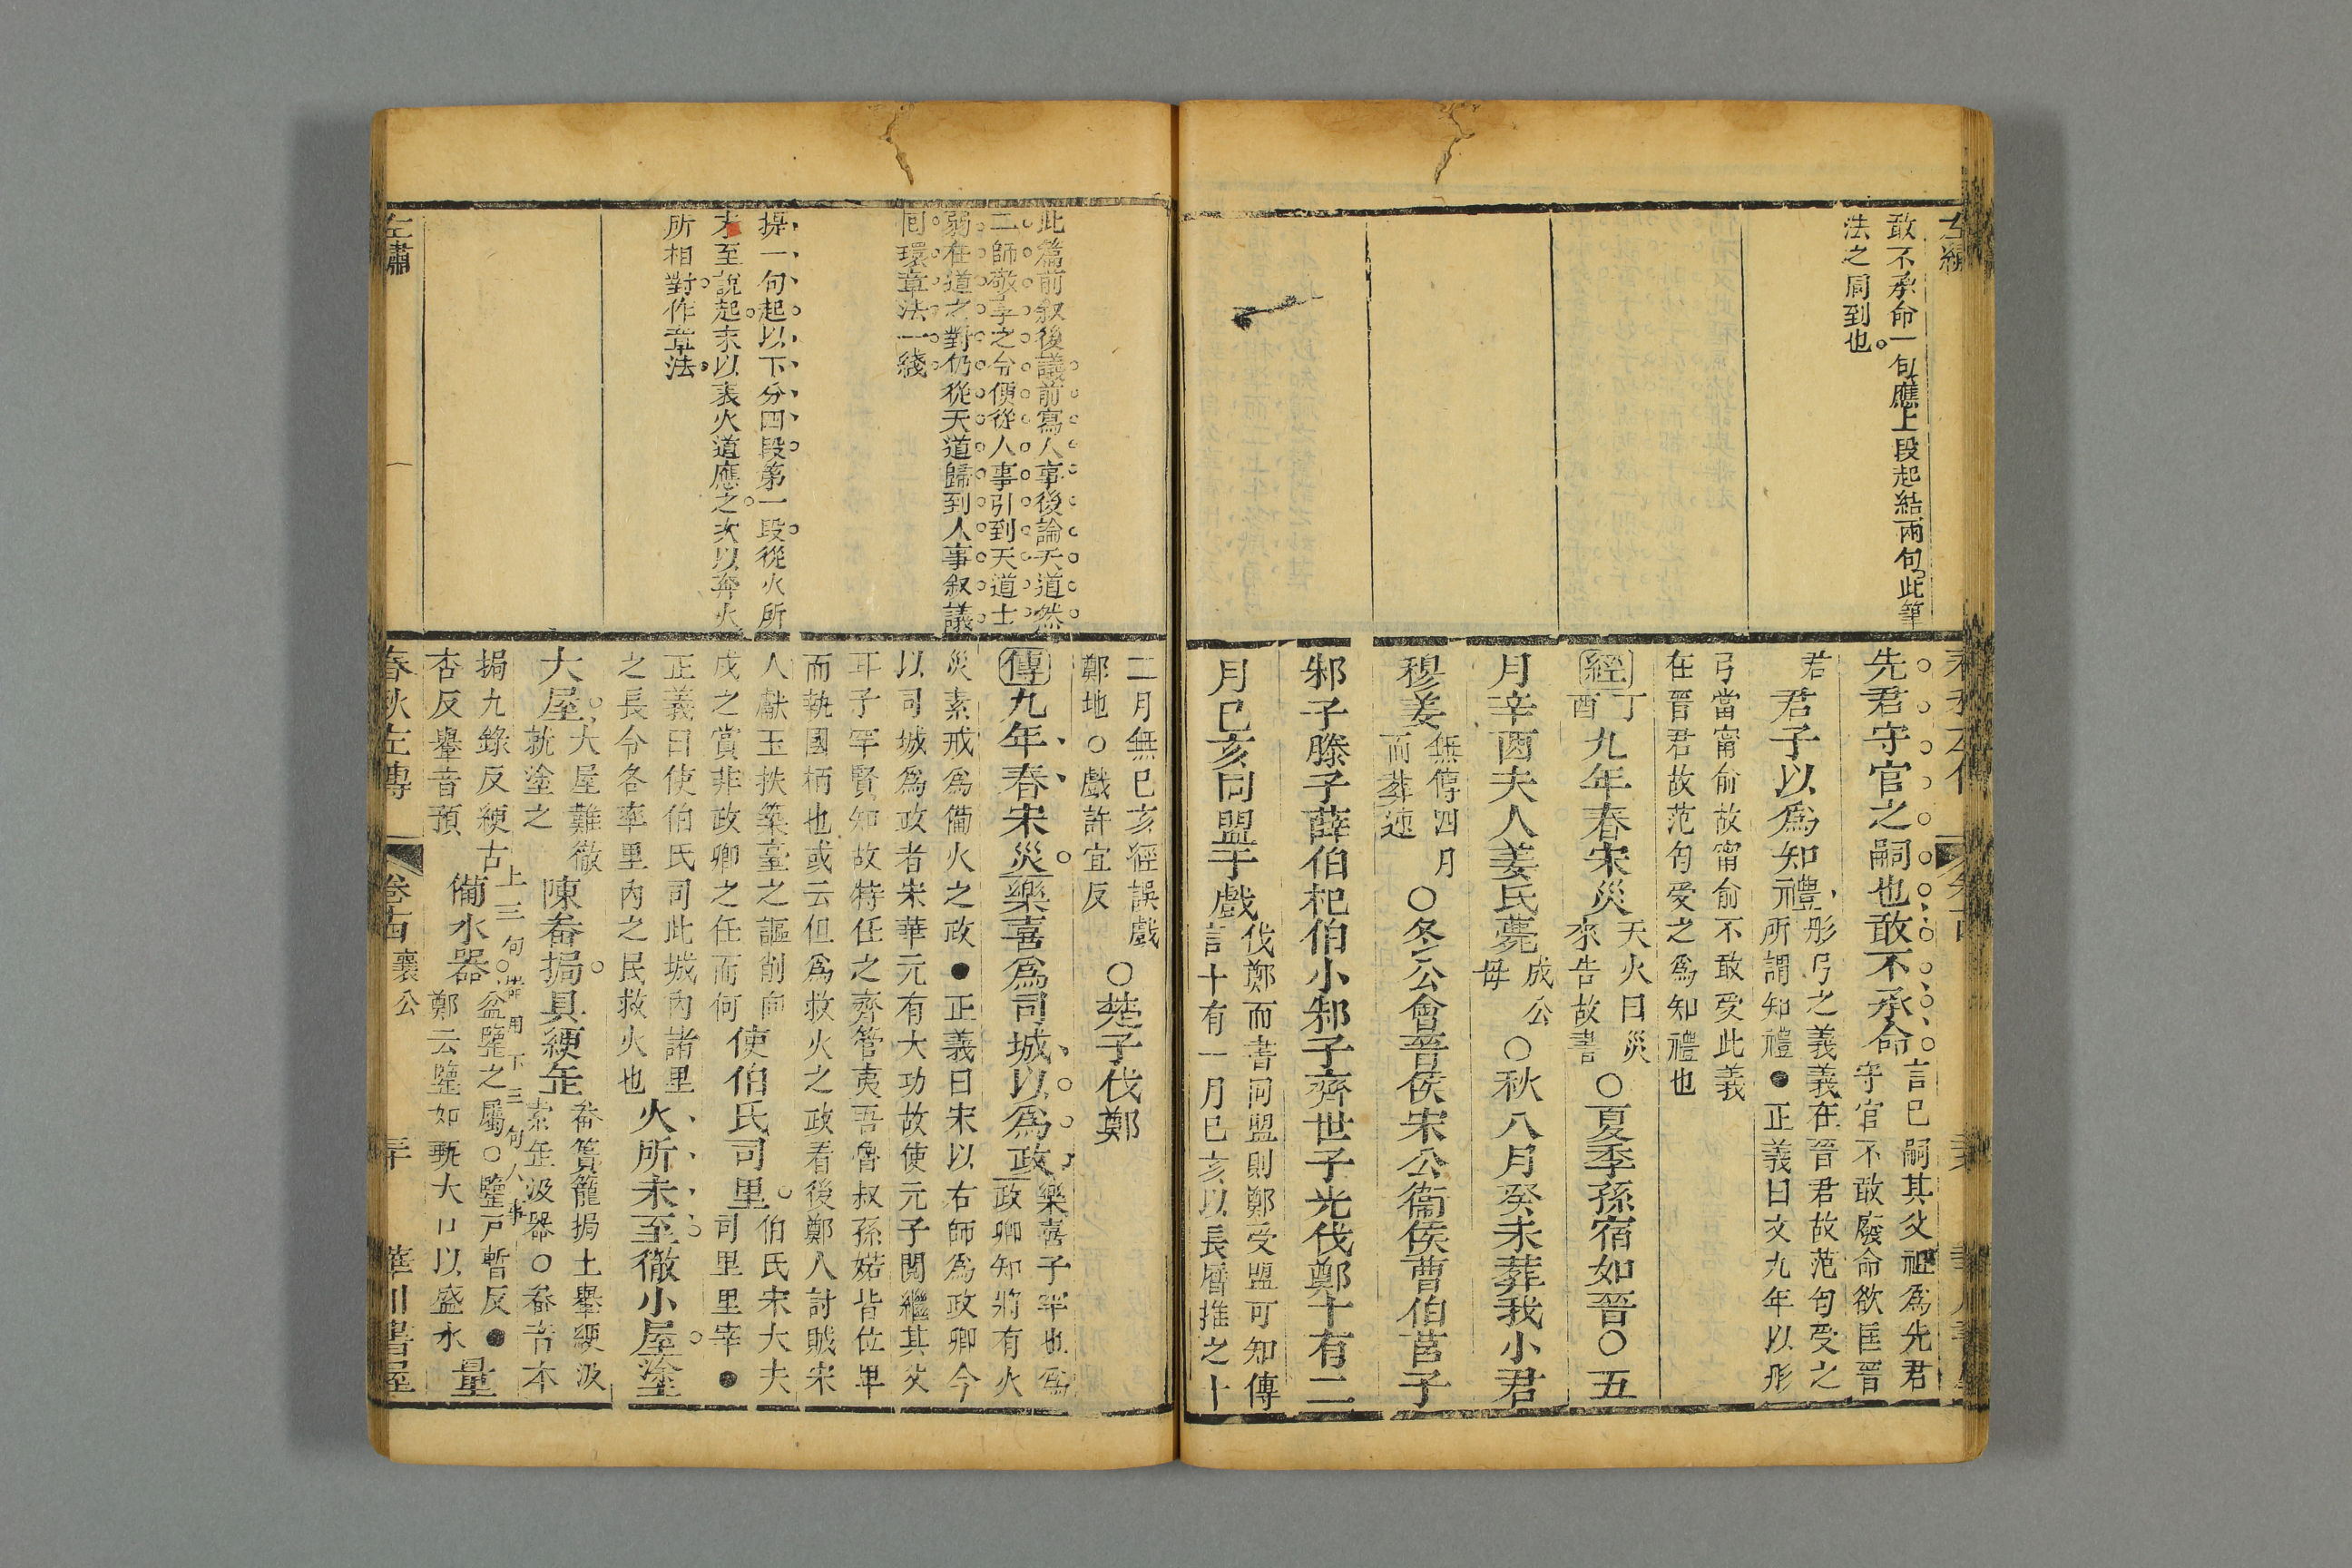 左繡
敢不承命一句應上段起結兩句此筆
法之周到也
先君守官之嗣也敢不承命
言已嗣其父祖爲先君
守官不敢廢命欲匡晉
君
君子以爲知禮
彤弓之義義在晉君故范匄受之
所謂知禮●正義曰文九年以彤
弓當甯俞故甯俞不敢受此義
在晉君故范匄受之爲知禮也
經
丁
酉
九年春宋災
天火曰災
來告故書
○夏季孫宿如晉○五
月辛酉夫人姜氏薨
成公
母
○秋八月癸未葬我小君
穆姜
無傳四月
而葬速
○冬公會晉侯宋公衞侯曹伯莒子
邾子滕子薛伯杞伯小邾子齊世子光伐鄭十有二
月已亥同盟于戲
伐鄭而書同盟則鄭受盟可知傳
言十有一月已亥以長曆推之十
此篇前叙後議前寫人事後論天道然
二師敬享之令便從人事引到天道士
弱在道之對仍從天道歸到人事叙議
囘環章法一綫
提一句起以下分四段第一段從火所
未至說起末以表火道應之次以奔火
所相對作章法
二月無已亥經誤戲
鄭地○戲許宜反
○楚子伐鄭
傳
九年春宋災樂喜爲司城以爲政
樂喜子罕也爲
政卿知將有火
災素戒爲備火之政●正義曰宋以右師爲政卿今
以司城爲政者宋華元有大功故使元子閱繼其父
耳子罕賢知故特任之齊管夷吾魯叔孫婼皆位卑
而執國柄也或云但爲救火之政看後鄭人討賊宋
人獻玉扶築臺之謳削向
戌之賞非政卿之任而何
使伯氏司里
伯氏宋大夫
司里里宰●
正義曰使伯氏司此城內諸里
之長令各率里內之民救火也
火所未至徹小屋塗
大屋
大屋難徹
就塗之
陳畚挶具綆缶
畚簣籠挶土轝綆汲
索缶汲器○畚音本
挶九錄反綆古
杏反轝音預
上三句器用下三句人事
備水器
盆鑒之屬○鑒戸暫反●
鄭云鑒如甀大口以盛水
量
左繡
春秋左傳
卷十四
襄公
華川書屋